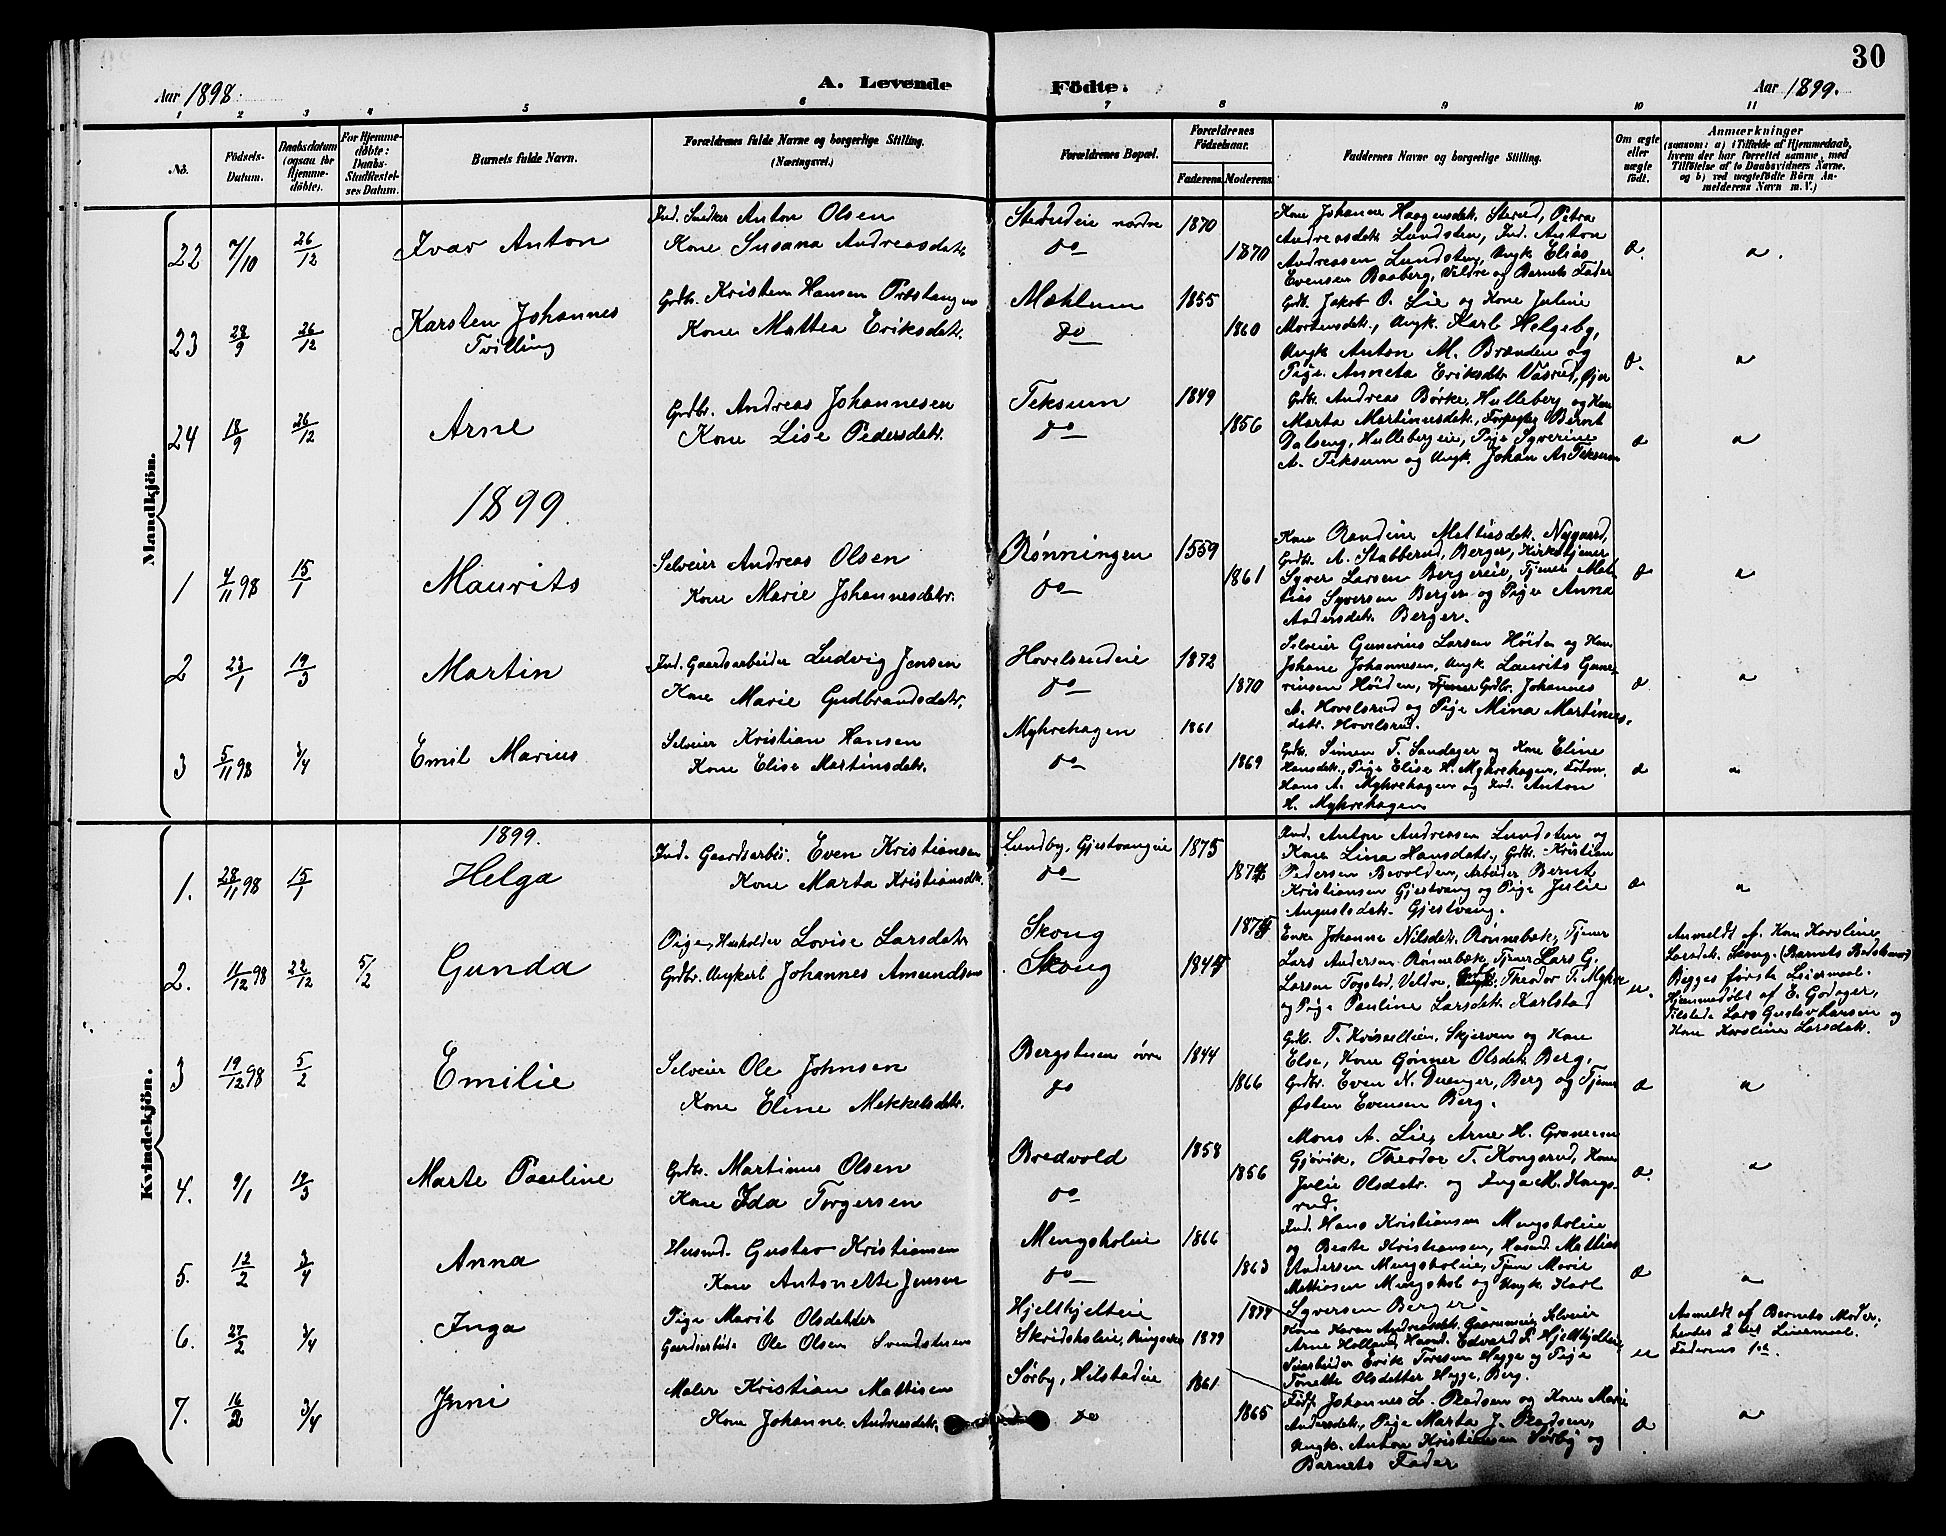 30
Aar 1898. A. Levende Födte. Aar 1899.
1 2 3 4 5 6 7 8 9 10 11
No.
Födsels-Datum.
Daabsdatum (ogsaa for Hjemmedöbte).
For Hjemmedöbte: Daabs-Stadfæstelses Datum.
Barnets fulde Navn.
Forældrenes fulde Navne og borgerlige Stilling.
(Næringsvei.)
Forældrenes Bopæl.
Forældrenes Födselsaar.
Faderens. Moderens.
Faddernes Navne og borgerlige Stilling.
Om ægte eller uægte födt.
Anmærkninger
(saasom: a) i Tilfælde af Hjemmedaab, hvem der har forrettet samme, med Tilföielse af to Daabsvidners Navne, og b) ved uægtefödte Börn Anmelderens Navn m. V.)
Mandkjön.
22 7/10 26/12 Ivar Anton
Ind. Snedker Anton Olsen
Kone Susana Andreasdatr.
Sterudeie nordre
do
1870
1870
Kone Johanne Haagensdatr. Sterud, Petra
Andreasdatr. Lundsten, Ind. Anton
Andreassen Lundsten, Ungk. Elias
Evensen Baaberg, Veldre og Barnets Fader
23 28/9 26/12 Karsten Johannes
Tvilling
Grdbr. Kristen Hansen Præstangen
Kone Mattea Eriksdatr.
Mæhlum
do
1855
1860
Grdb. Jakob O. Lie og Kone Juline
Mortensdatr., Ungk. Karl Helgeby,
Ungk. Anton M. Brænden og
Pige Anneta Eriksdatr. Vasrud, Øier
24 18/9 26/12 Arne
Grdbr. Andreas Johannesen
Kone Lise Pedersdatr.
Teksum
do
1849
1856
Grdb. Andreas Børke, Hulleberg og Kone
Marta Martinusdatr., Bernt
Dalseng, Hullebergeie, Pige Syverine
A. Teksum og Ungk. Johan A. Teksum
1899.
1 4/11 98 15/1 Maurits
Selveier Andreas Olsen
Kone Marie Johannesdatr.
Rønningen
do
1559
1861
Kone Randine Mattisdatr. Nygaard,
Grdbr. A. Stabberud, Berger, Kirketjener
Syver Larsen Bergereie, Tjener Mat-
tias Syversen Berger og Pige Anna
Andersdatr. Berger.
2 23/1 19/3 Martin
Ind. Gaardsarbeider Ludvig Jensen
Kone Marie Gudbrandsdatr.
Hovelsrudeie
do
1872
1870
Selveier Gunerius Larsen Høiden og Kone
Johane Johannesen, Ungk. Laurits Gune-
riusen Høiden, Grdbr. Johannes
A. Hovelsrud og Pige Mina Martinus-
datr. Hovelsrud.
3 5/11 98 3/4 Emil Marius
Selveier Kristian Hansen
Kone Elise Martinsdatr.
Myhrehagen
do
1861
1869
Grdbr. Simen T. Sandager og Kone Eline
Hansdatr., Pige Elise H. Myhrehagen,
Hans A. Myhrehagen og Ind. Anton
H. Myhrehagen
Kvindekjön.
1899.
1. 28/11 98 15/1 Helga
Ind. Gaardsarbei. Even Kristiansen
Kone Marta Kristiansdtr.
Lundby, Gjestvangeie
do
1875
Ind. Anton Andreassen Lundsten og
Kone Lina Hansdatr., Grdbr. Kristian
Pedersen Bevolden, Arbeider Bernt
Kristiansen Gjestvang og Pige Julie
Augustsdatr. Gjestvang.
2. 4/12 98 22/12 5/2 Gunda
Pige, Husholder Lovise Larsdatr
Grdbr. Ungkerl Johannes Amundsen
Skoug
Skoug
Enke Johanne Nilsdatr. Rønnebæk, Tjener
Lars Andersen Rønnebæk, Tjener Lars G.
Larsen Togstad, Veldre, Theodor T. Myhre
og Pige Pauline Larsdatr. Karlstad
u.
Anmeldt af Kone Karoline
Larsdatr. Skoug. (Barnets Bedstemor)
Begges første Leiermaal.
Hjemmedøbt af E. Godager,
Tilstede Lars Gustav Larsen og
Kone Karoline Larsdatr.
3 19/12 98 5/2 Emilie
Selveier Ole Johnsen
Kone Eline Mekkelsdatr.
Bergstuen øvre
do
1844
1866
Grdb. T. Skjerven og Kone
Else, Kone Gønner Olsdatr. Berg.
Grdbr. Even N. Berg og Tjener
Østen Evensen Berg.
4. 9/1 19/3 Marte Pauline
Grdbr. Martinus Olsen
Kone Ida Torgersen
Bredvold
do
1858
1856
Mons A. Lie, Arne H. Granerun
Gjøvik, Theodor T. Kongsrud, Kone
Julie Olsdatr. og Inga M. Kongs-
rud.
5. 12/2 3/4 Anna
Husmd. Gustav Kristiansen
Kone Antonette Jensen
Mengsholeie
do
1866
1863
Ind. Hans Kristiansen Mengsholeie
og Beate Kristiansen, Husmd. Mattias
Andersen Mengsholeie, Tjener Marie
Mattiasen Mengshol og Ungk. Karl
Syversen Berger.
6. 27/2 3/4 Inga
Pige Marit Olsdatter
Gaardsarbeide Ole Olsen Svendstuen
Hjelskjelteie
Skredsholeie, Ringsaker
1879
1877
Kone Karen Andreasdatr. Selveier
Arne Holland, Husmd. Edvard P. Hjelskjelteie,
Erik Toresen Hegge og Pige
Tonette Olsdatter Hegge, Berg.
u
Anmeldt af Barnets Moder,
hendes 2det Leiermaal.
Faderens 1te.
7. 16/2 3/4 Jenni
Maler Kristian Mattisen
Kone Johanne Andreasdatr.
Sørby, Hilstadeie
do
1861
1865
Johannes L. Pladsen og Kone Marie
Andersdatr., Pige Marta J. Pladsen,
Ungk. Anton Kristiansen Sørby og
Barnets Fader